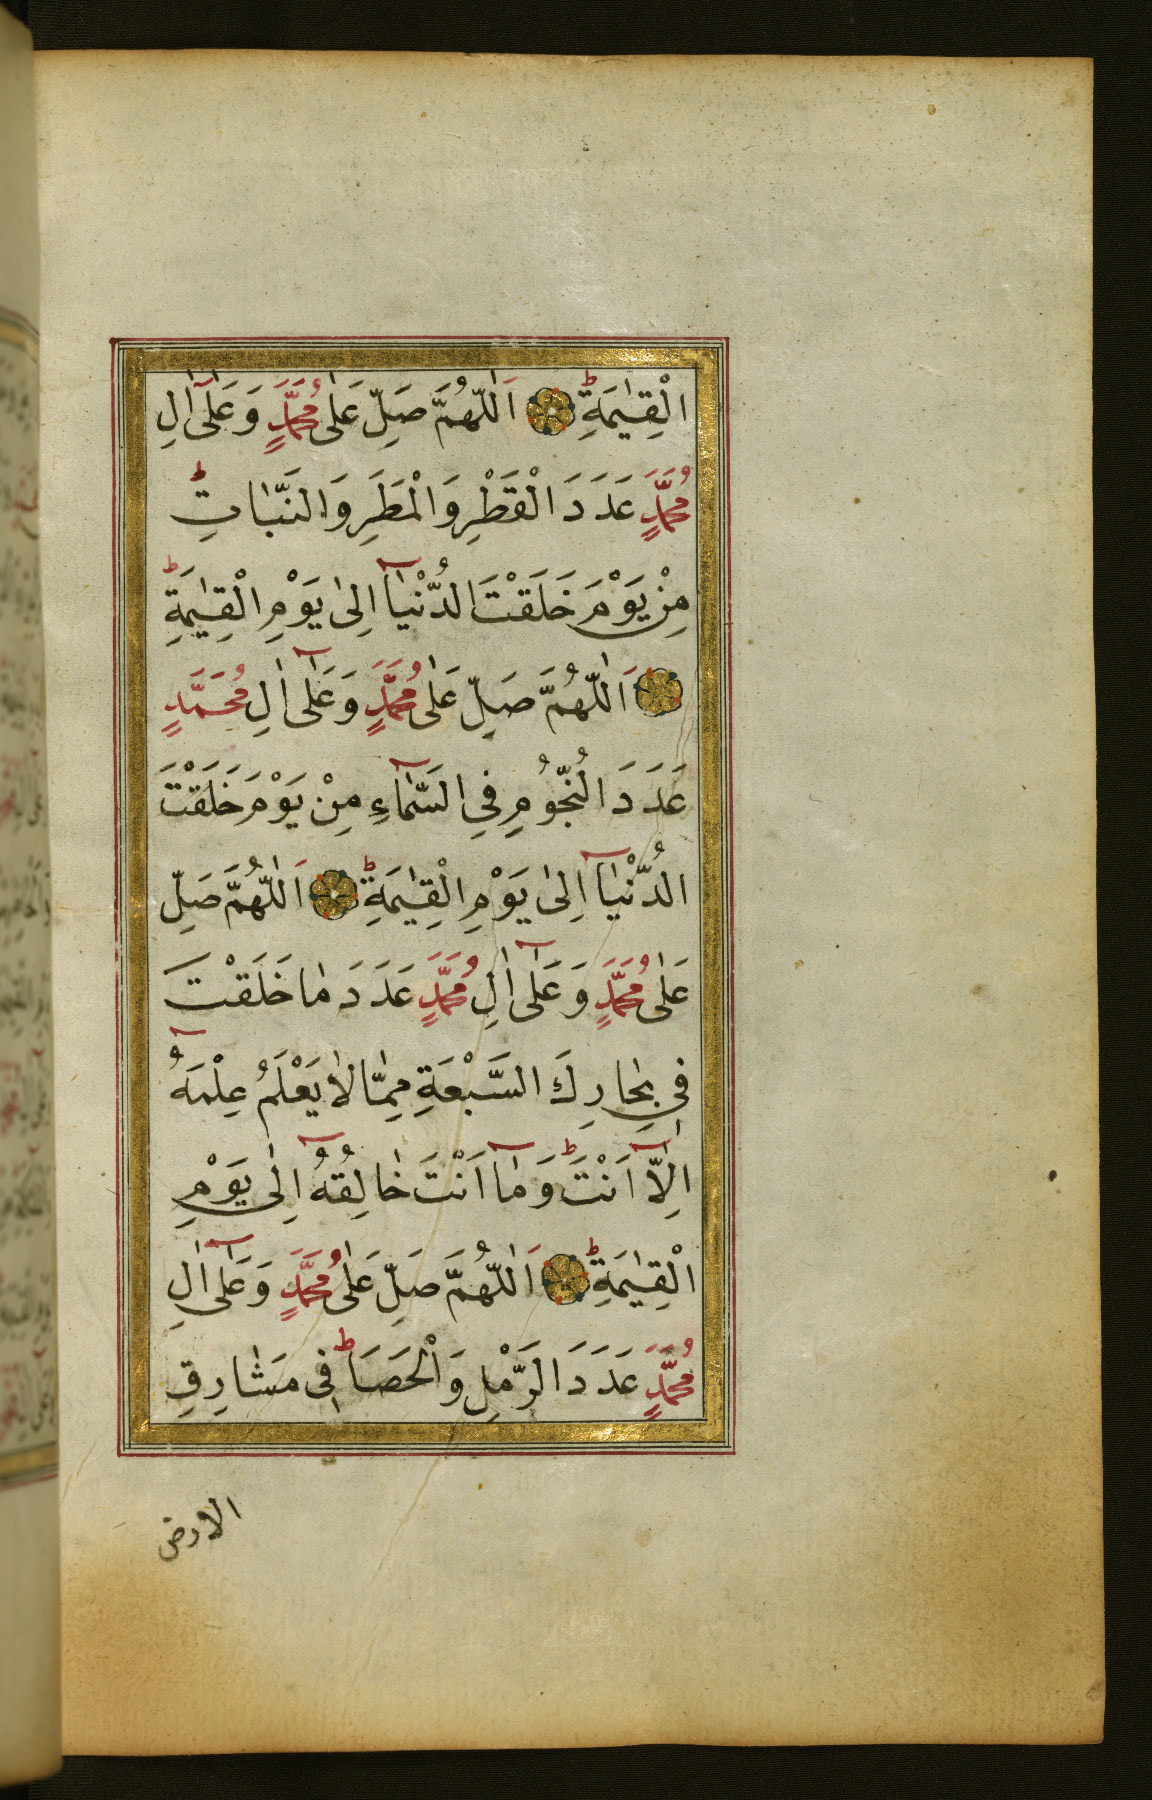 الْقِيٰمَةِ ۞ اَللّٰهُمَّ صَلِّ عَلٰى مُحَمَّدٍ وَعَلٰٓى اٰلِ
مُحَمَّدٍ عَدَدَ الْقَطْرِ وَالْمَطَرِ وَالنَّبَاتِ ط
مِنْ يَوْمَ خَلَقْتَ الدُّنْيَآ اِلٰى يَوْمِ الْقِيٰمَةِ ط
۞ اَللّٰهُمَّ صَلِّ عَلٰى مُحَمَّدٍ وَعَلٰٓى اٰلِ مُحَمَّدٍ
عَدَدَ النُّجُومِ فِي السَّمَآءِ مِنْ يَوْمَ خَلَقْتَ
الدُّنْيَآ اِلٰى يَوْمِ الْقِيٰمَةِ ط ۞ اَللّٰهُمَّ صَلِّ
عَلٰى مُحَمَّدٍ وَعَلٰٓى اٰلِ مُحَمَّدٍ عَدَدَ مَا خَلَقْتَ
فِي بِحَارِكَ السَّبْعَةِ مِمَّا لَا يَعْلَمُ عِلْمَهُٓ
اِلَّآ اَنْتَ ط وَمَآ اَنْتَ خَالِقُهُٓ اِلٰى يَوْمِ
الْقِيٰمَةِ ط ۞ اَللّٰهُمَّ صَلِّ عَلٰى مُحَمَّدٍ وَعَلٰٓى اٰلِ
مُحَمَّدٍ عَدَدَ الرَّمْلِ وَالْحَصَا ط فِي مَشَارِقِ
الارض